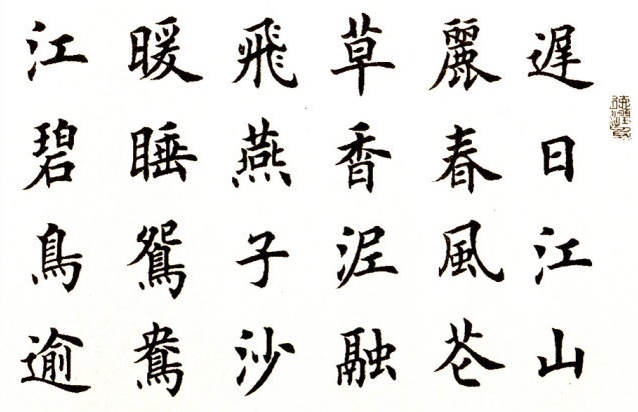 遲日江山
麗春風花
草香泥融
飛燕子沙
暖睡鴛鴦
江碧鳥逾